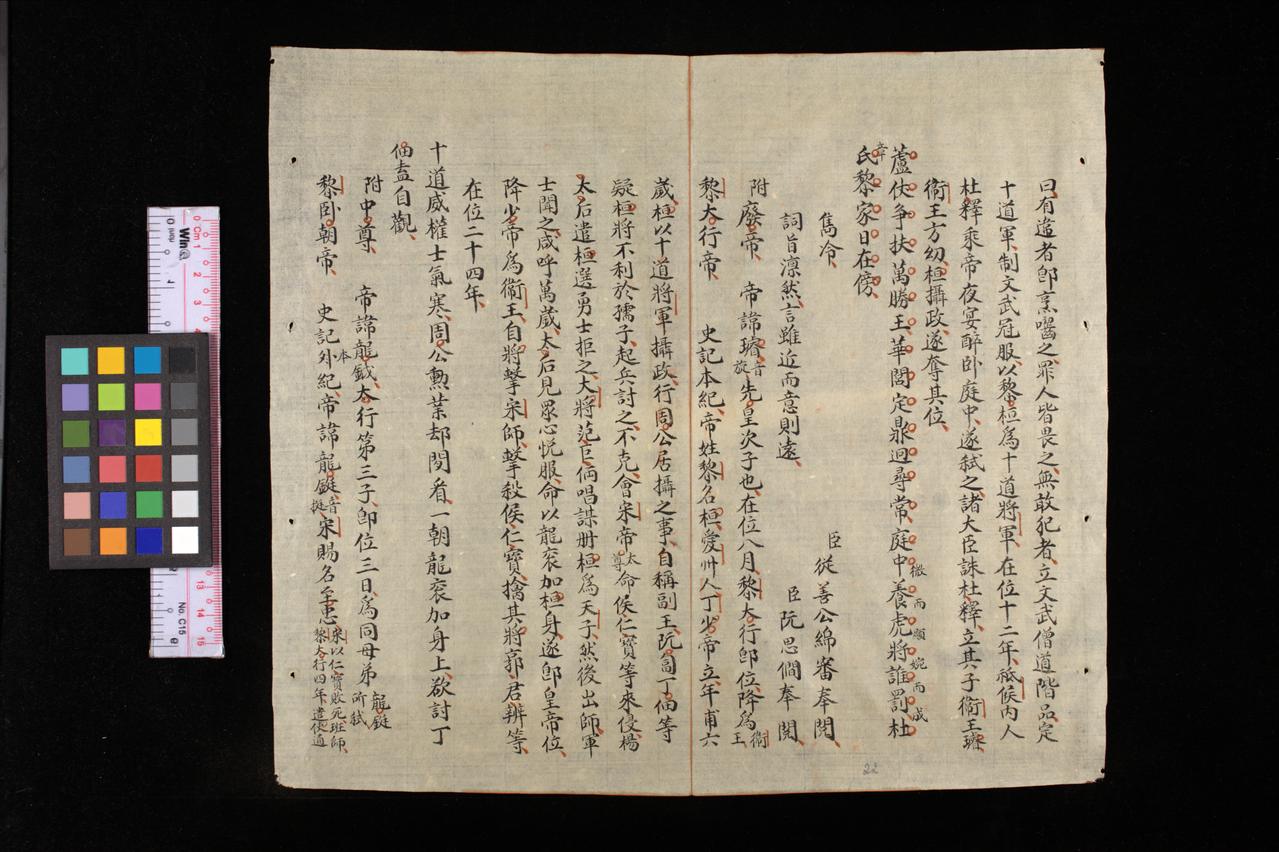 曰有造者卽烹嚙之罪人皆畏之無敢犯者立文武僧道階品定
十道軍制文武冠服以黎桓爲十道將軍在位十二年祗候內人
杜釋乘帝夜宴醉卧庭中遂弑之諸大臣誅杜釋立其子衞王璿
衞王方幼桓攝政遂奪其位
蘆仗争扶萬勝王華閭定鼎迥尋常庭中養虎將誰罰杜
微而顯婉而成章
氏黎家日在傍
雋冷 臣從善公綿審奉閱
詞旨凛然言雖近而意則遠 臣阮思僩奉閱
附廢帝 帝諱璿音旋先皇次子也在位八月黎大行卽位降爲衞王
黎大行帝 史記本紀帝姓黎名桓愛州人丁少帝立年甫六
歲桓以十道將軍攝政行周公居攝之事自稱副王阮匐丁佃等
疑桓將不利於孺子起兵討之不克會宋帝太尊命侯仁寶等來侵楊
太后遣桓選勇士拒之大將范巨倆唱謀册桓爲天子然後出師軍
士聞之咸呼萬歲太后見眾心悦服命以龍衮加桓身遂卽皇帝位
降少帝爲衞王自將擊宋師擊殺侯仁寶擒其將郭君辨等
在位二十四年
十道威權士氣寒周公勳業却閒看一朝龍衮加身上欲討丁
佃盍自觀
附中尊 帝諱龍鉞大行第三子卽位三日爲同母弟龍鋌所弑
黎卧朝帝 史記本外紀帝諱龍鋌音挺宋賜名至忠宋以仁寶敗死班師
黎大行四年遣使通
22
Cm 1
2
3
13
14
15
1
No. C15